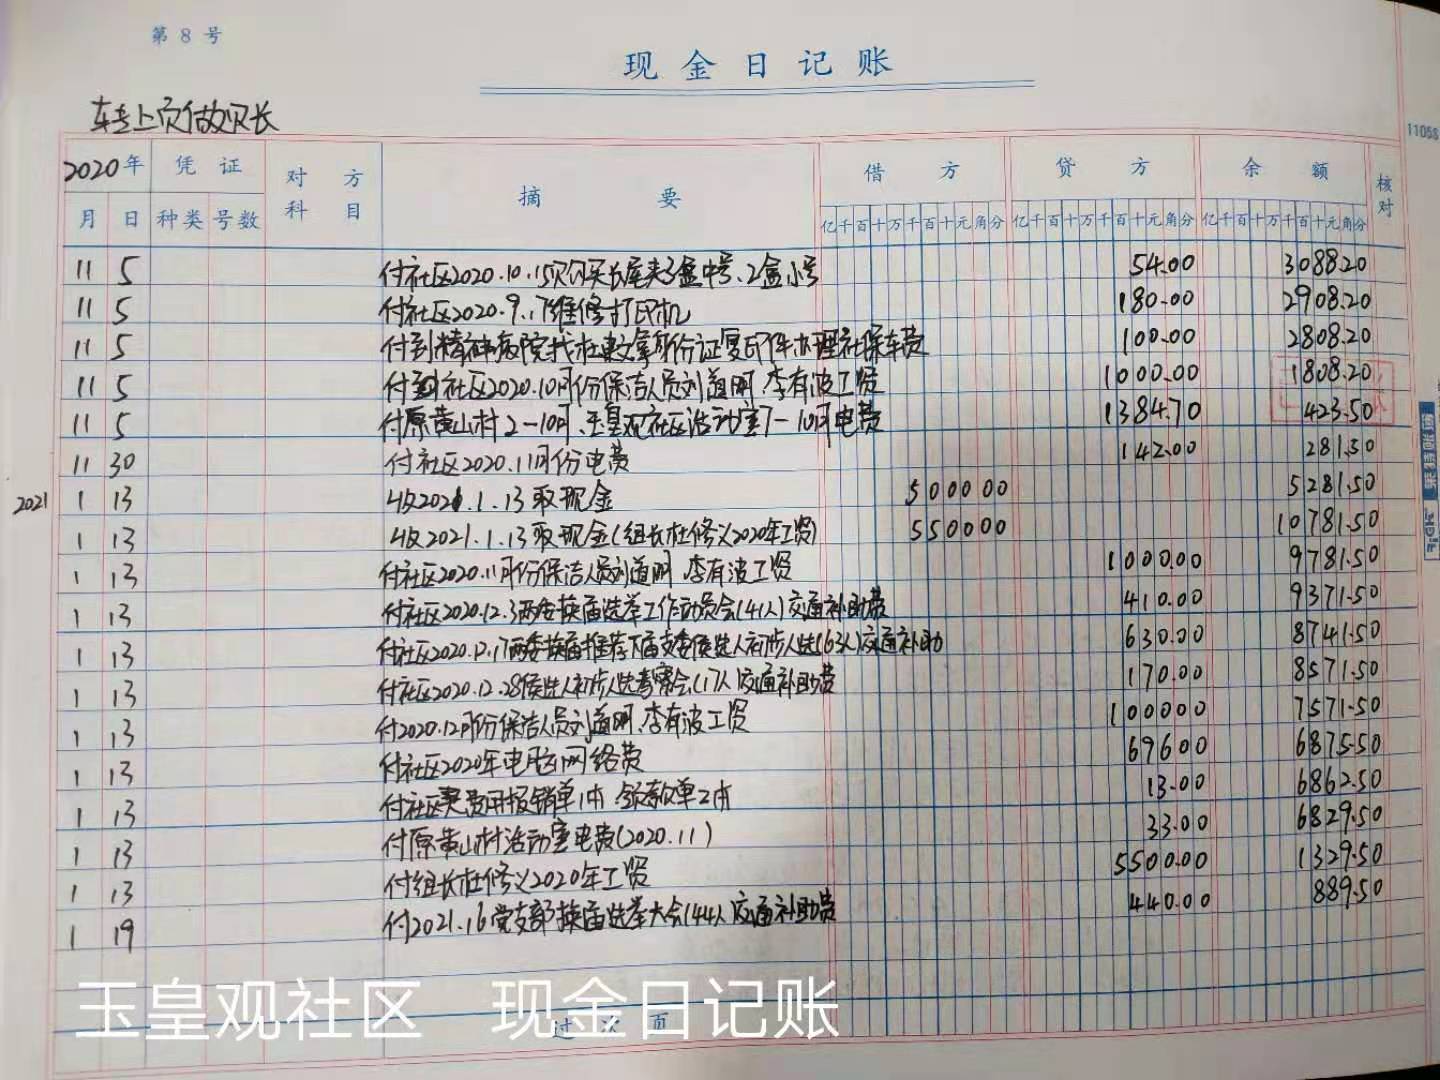 第 8 号
现金日记账
11058
2020年 凭证 对方科目 摘要 借方 贷方 余额 核对
月 日 种类 号数 亿千百十万千百十元角分 亿千百十万千百十元角分 亿千百十万千百十元角分
11 5 付社区2020.10.15 长尾夹3盒中号、2盒小号 54.00 3088.20
11 5 付社区2020.9.17维修打印机 180.00 2908.20
11 5 付到精神病院找杜 拿身份证复印件办理社保车费 100.00 2808.20
11 5 付 社区2020.10月份保洁人员刘道明、李有波工资 1000.00 1808.20
11 5 付原黄山村2-10月、玉皇观社区活动室7-10月电费 1384.70 423.50
11 30 付社区2020.11月份电费 142.00 281.50
2021 1 13 收2021.1.13取现金 500000 5281.50
1 13 收2021.1.13取现金(组长杜修义2020年工资) 550000 10781.50
1 13 付社区2020.11月份保洁人员刘道明、李有波工资 1000.00 9781.50
1 13 付社区2020.12.3两委换届选举工作动员会(41人)交通补助费 410.00 9371.50
1 13 付社区2020.12.17两委换届推荐下届支委候选人初步人选(63人)交通补助 630.00 8741.50
1 13 付社区2020.12.28候选人初步人选考察会(17人)交通补助费 170.00 8571.50
1 13 付2020.12月份保洁人员刘道明、李有波工资 100000 7571.50
1 13 付社区2020年电脑网络费 69600 6875.50
1 13 付社区 费用报销单1本、领款单2本 13.00 6862.50
1 13 付原黄山村活动室电费(2020.11) 33.00 6829.50
1 13 付组长杜修义2020年工资 5500.00 1329.50
1 19 付2021.1.6党支部换届选举大会(44人)交通补助费 440.00 889.50
过次页
玉皇观社区 现金日记账